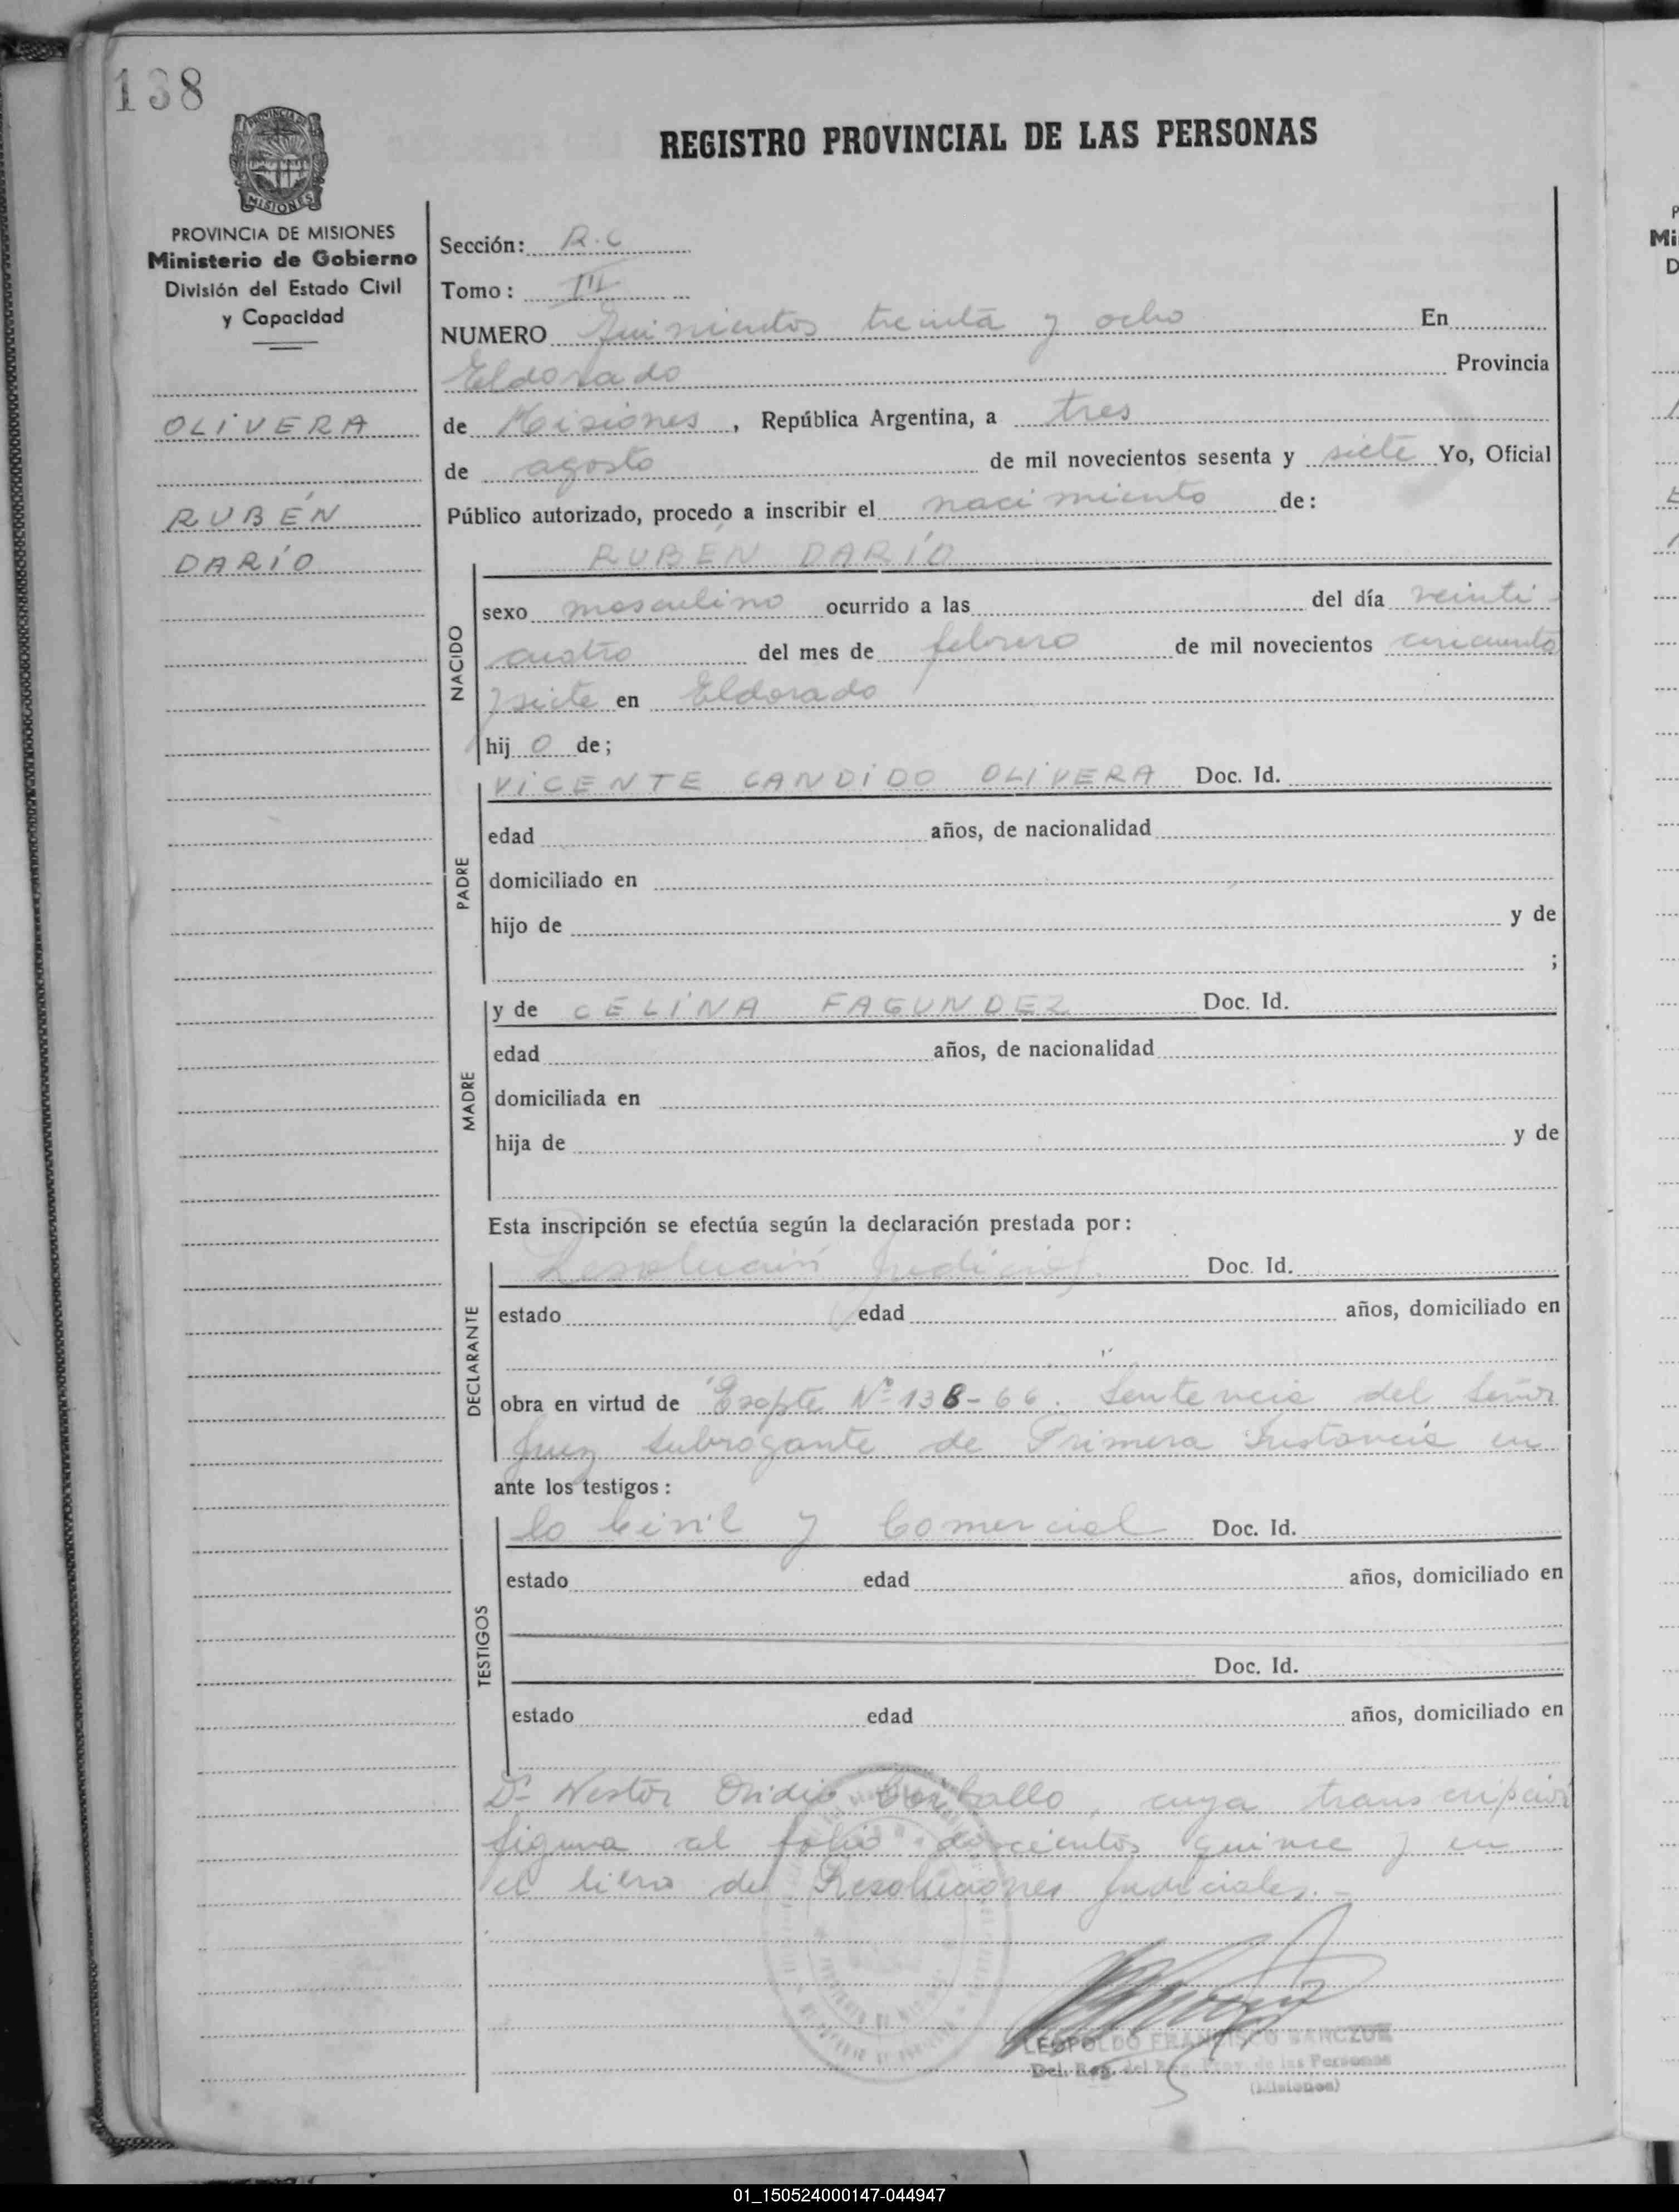 138
REGISTRO PROVINCIAL DE LAS PERSONAS
PROVINCIA DE MISIONES
Ministerio de Gobierno
División del Estado Civil
y Capacidad
OLIVERA
RUBÉN
DARÍO
Sección: R.C
Tomo: III
NUMERO Quinientos treinta y ocho En
Eldorado Provincia
de Misiones, República Argentina, a tres
de agosto de mil novecientos sesenta y siete Yo, Oficial
Público autorizado, procedo a inscribir el nacimiento de:
RUBÉN DARÍO
NACIDO
sexo masculino ocurrido a las del día veinti-
cuatro del mes de febrero de mil novecientos cincuenta
y siete en Eldorado
hijo de;
PADRE
VICENTE CANDIDO OLIVERA Doc. Id.
edad años, de nacionalidad
domiciliado en
hijo de y de
;
MADRE
y de CELINA FAGUNDEZ Doc. Id.
edad años, de nacionalidad
domiciliada en
hija de y de
Esta inscripción se efectúa según la declaración prestada por:
DECLARANTE
Resolución Judicial Doc. Id.
estado edad años, domiciliado en
obra en virtud de Expte Nº 138-66. Sentencia del Señor
Juez Subrogante de Primera Instancia en
ante los testigos:
TESTIGOS
lo Civil y Comercial Doc. Id.
estado edad años, domiciliado en
Doc. Id.
estado edad años, domiciliado en
Dr Nestor Ovidio cuya transcripción
figura al folio doscientos quince y en
el libro de Resoluciones Judiciales.-
LEOPOLDO FRANCISCO
Del. Reg. del Reg. Prov. de las Personas
(Misiones)
01_150524000147-044947